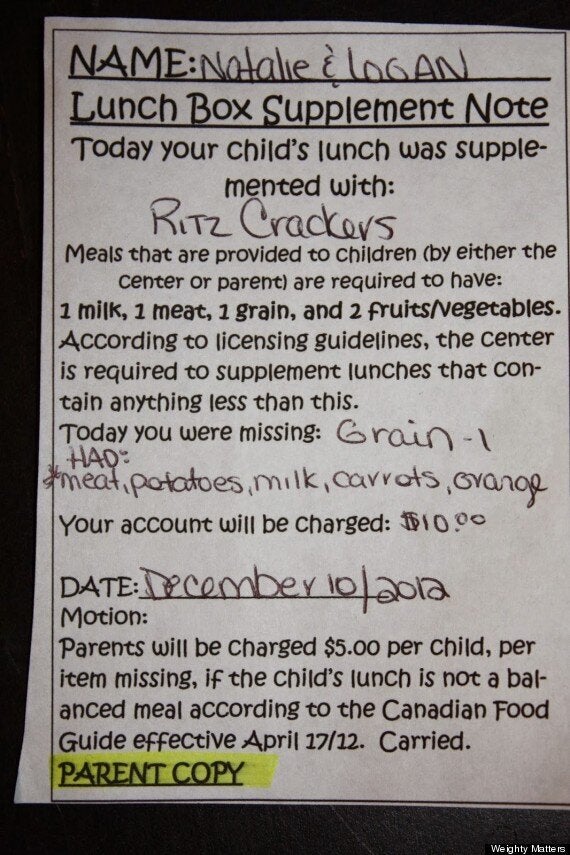 NAME: Natalie & LOGAN
Lunch Box Supplement Note
Today your child's lunch was supple-
mented with:
RITZ Crackers
Meals that are provided to children (by either the
center or parent) are required to have:
1 milk, 1 meat, 1 grain, and 2 fruits/vegetables.
According to licensing guidelines, the center
is required to supplement lunches that con-
tain anything less than this.
Today you were missing: Grain - 1
HAD:
*meat, potatoes, milk, carrots, orange
Your account will be charged: $10.00
DATE: December 10/2012
Motion:
Parents will be charged $5.00 per child, per
item missing, if the child's lunch is not a bal-
anced meal according to the Canadian Food
Guide effective April 17/12. Carried.
PARENT COPY
Weighty Matters